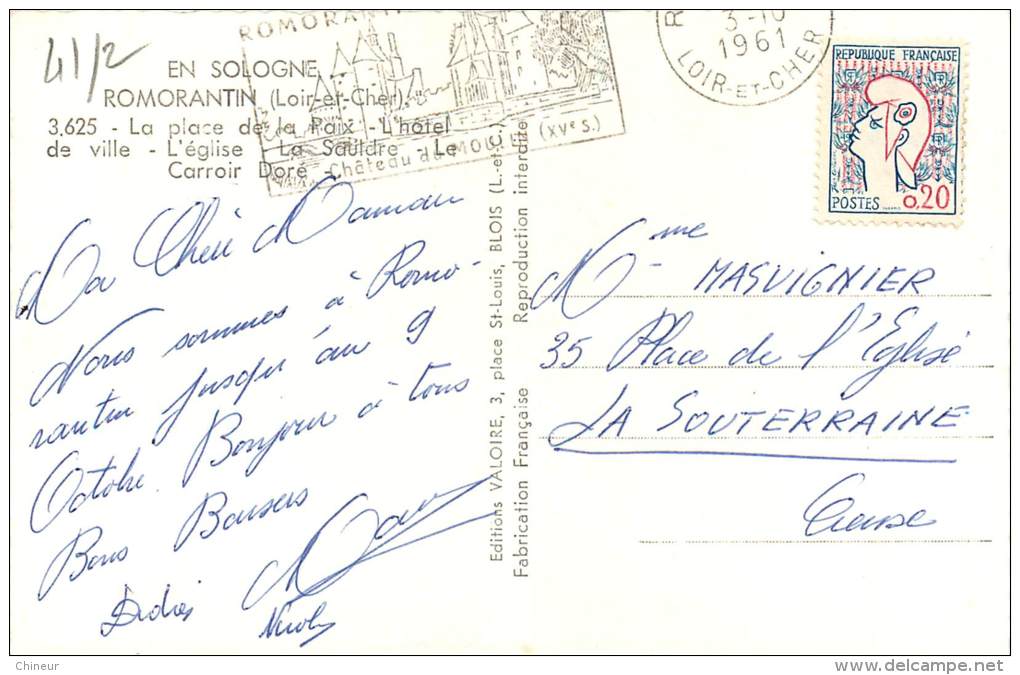 41/2
EN SOLOGNE
ROMORANTIN (Loir-et-Cher).
3.625 - La place de la Paix - L'hôtel
de ville - L'église - La Sauldre - Le
Carroir Doré -
ROMORANTI
Château du MOUL (XVe S.)
3-10
1961
LOIR-ET-CHER
REPUBLIQUE FRANÇAISE
POSTES 0,20
Ma Chère Maman
Nous sommes à Romo-
rantin jusqu'au 9
Octobre. Bonjour à tous
Bons Baisers
Didier
Nicole
Editions VALOIRE, 3, place St-Louis, BLOIS (L.-et-C.)
Fabrication Française Reproduction interdite
Mme MASVIGNIER
35 Place de l'Eglise
LA SOUTERRAINE
Creuse
Chineur
delcampe.net